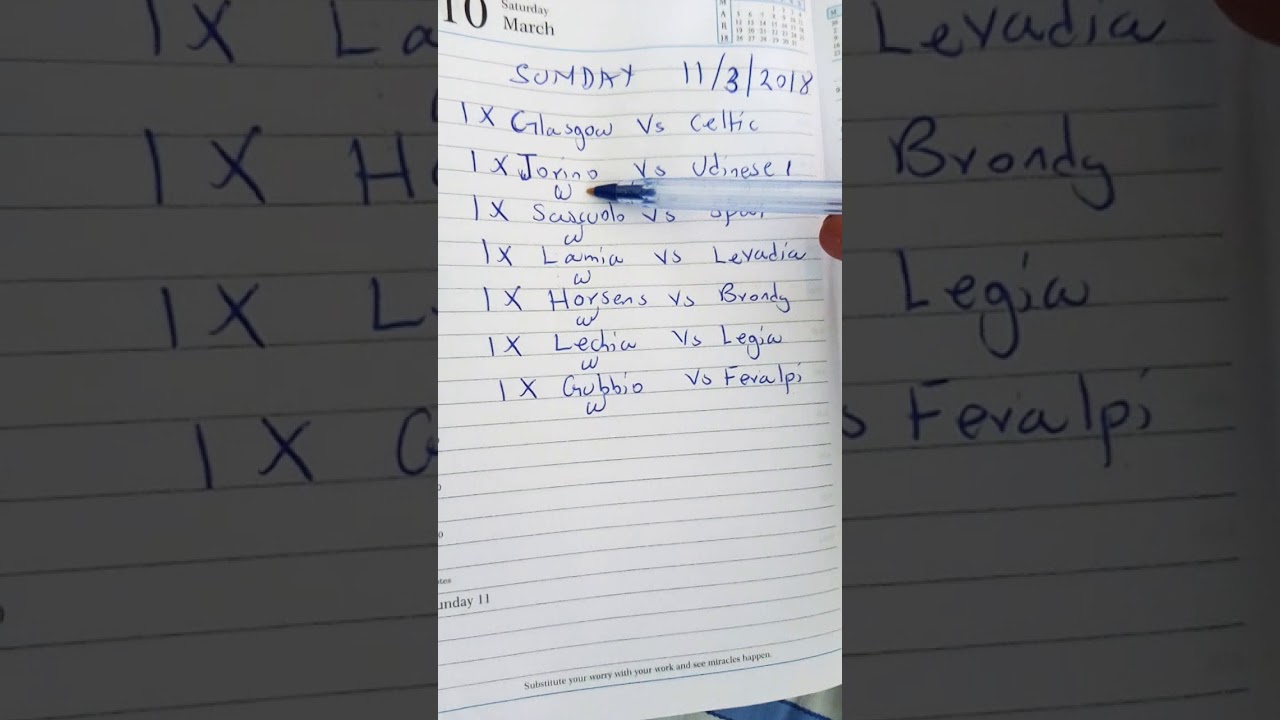 10 Saturday
March
SUNDAY 11/3/2018
1X Glasgow Vs Celtic
1X Jorino Vs Udinese 1
w
1X Sascuolo Vs Spal
w
1X Lamia vs Levadia
w
1X Horsens Vs Brondy
w
1X Lechia Vs Legia
w
1X Gubbio Vs Feralpi
w
unday 11
Substitute your worry with your work and see miracles happen.